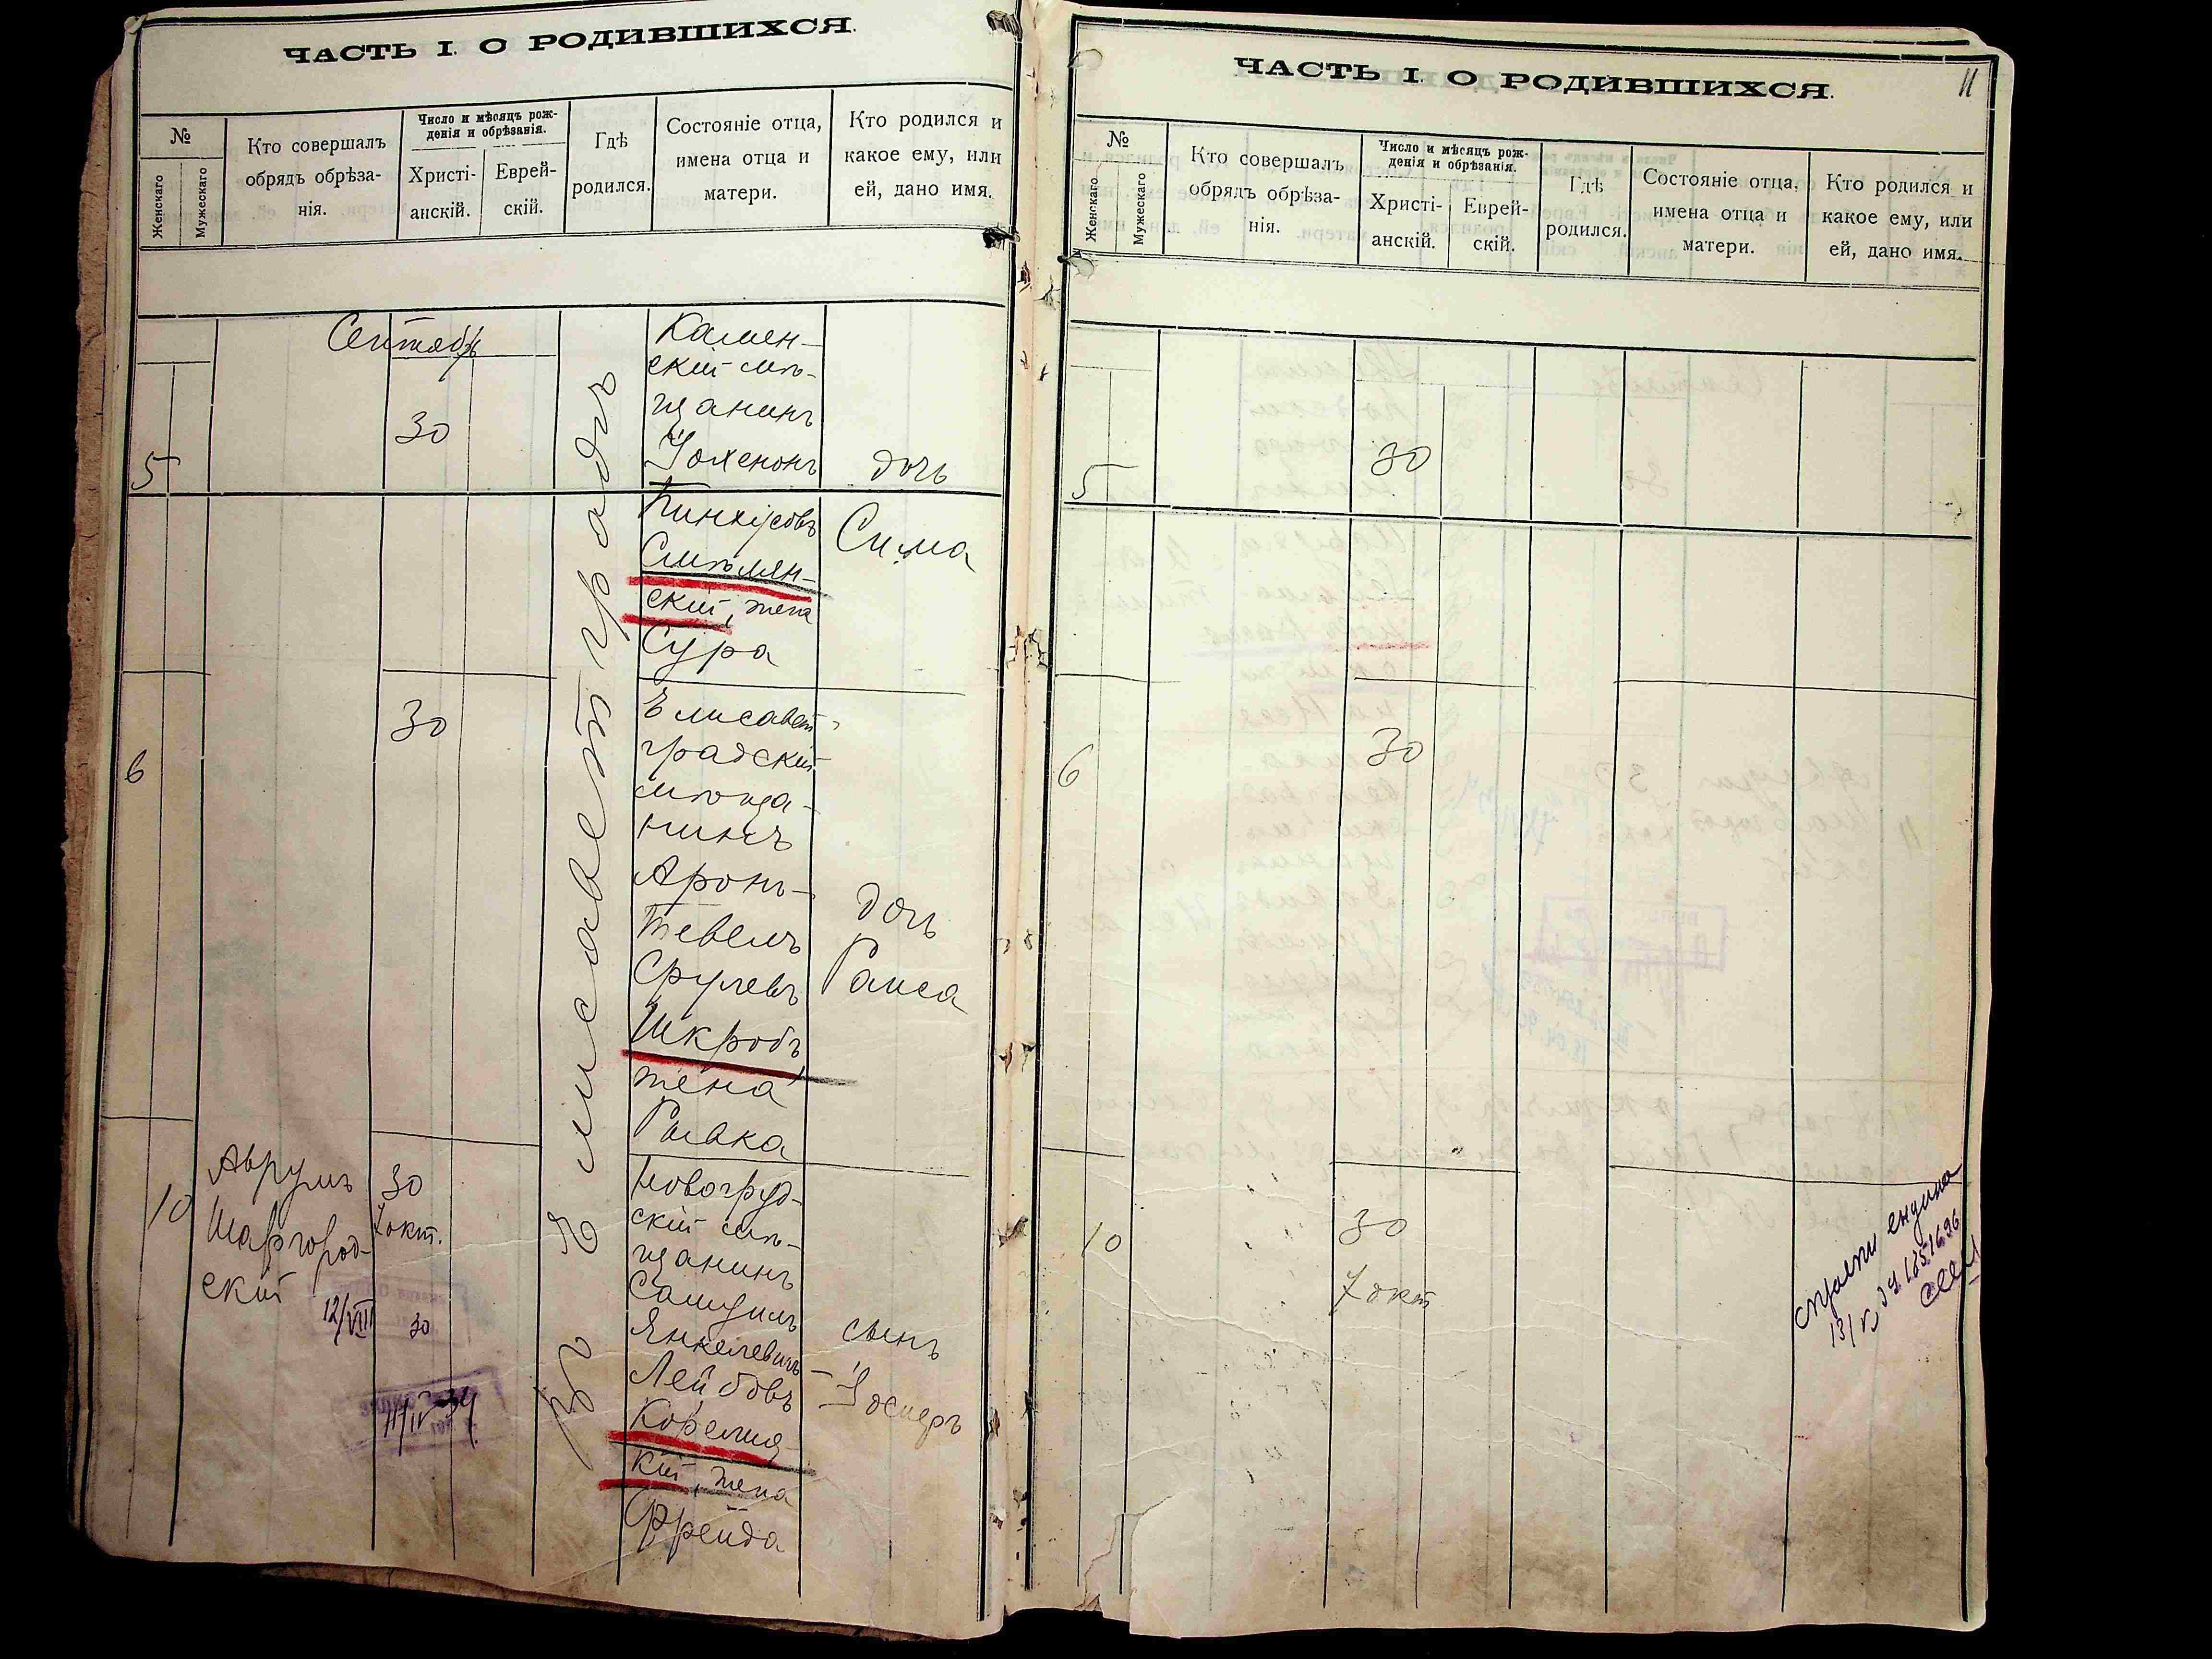 ЧАСТЬ I. О РОДИВШИХСЯ.
№
Женскаго
Мужескаго
Кто совершалъ
обрядъ обрѣза-
нія.
Число и мѣсяцъ рож-
денія и обрѣзанія.
Христі-
анскій.
Еврей-
скій.
Гдѣ
родился.
Состояніе отца,
имена отца и
матери.
Кто родился и
какое ему, или
ей, дано имя.
Сентябрь
5
30
Камен-
скій мѣ-
щанинъ
Іохенонъ
Пинхусовъ
Смѣлян-
скій, жена
Сура
дочь
Сима
6
30
Елисавет-
градскій
мѣща-
нинъ
Аронъ-
Тевель
Срулевъ
Шкробъ
жена
Рывка
дочь
Раиса
10
Аврумъ
Шаргород-
скій
30
7 окт.
12/VIII
30
11/IV 34
Новогруд-
скій мѣ-
щанинъ
Самуилъ
Янкелевичъ-
Лейбовъ
Корелиц-
кій, жена
Фрейда
сынъ
Іосифъ
Въ Елисаветградѣ
ЧАСТЬ I. О РОДИВШИХСЯ.
11
№
Женскаго
Мужескаго
Кто совершалъ
обрядъ обрѣза-
нія.
Число и мѣсяцъ рож-
денія и обрѣзанія.
Христі-
анскій.
Еврей-
скій.
Гдѣ
родился.
Состояніе отца,
имена отца и
матери.
Кто родился и
какое ему, или
ей, дано имя.
5
30
6
30
10
30
7 окт